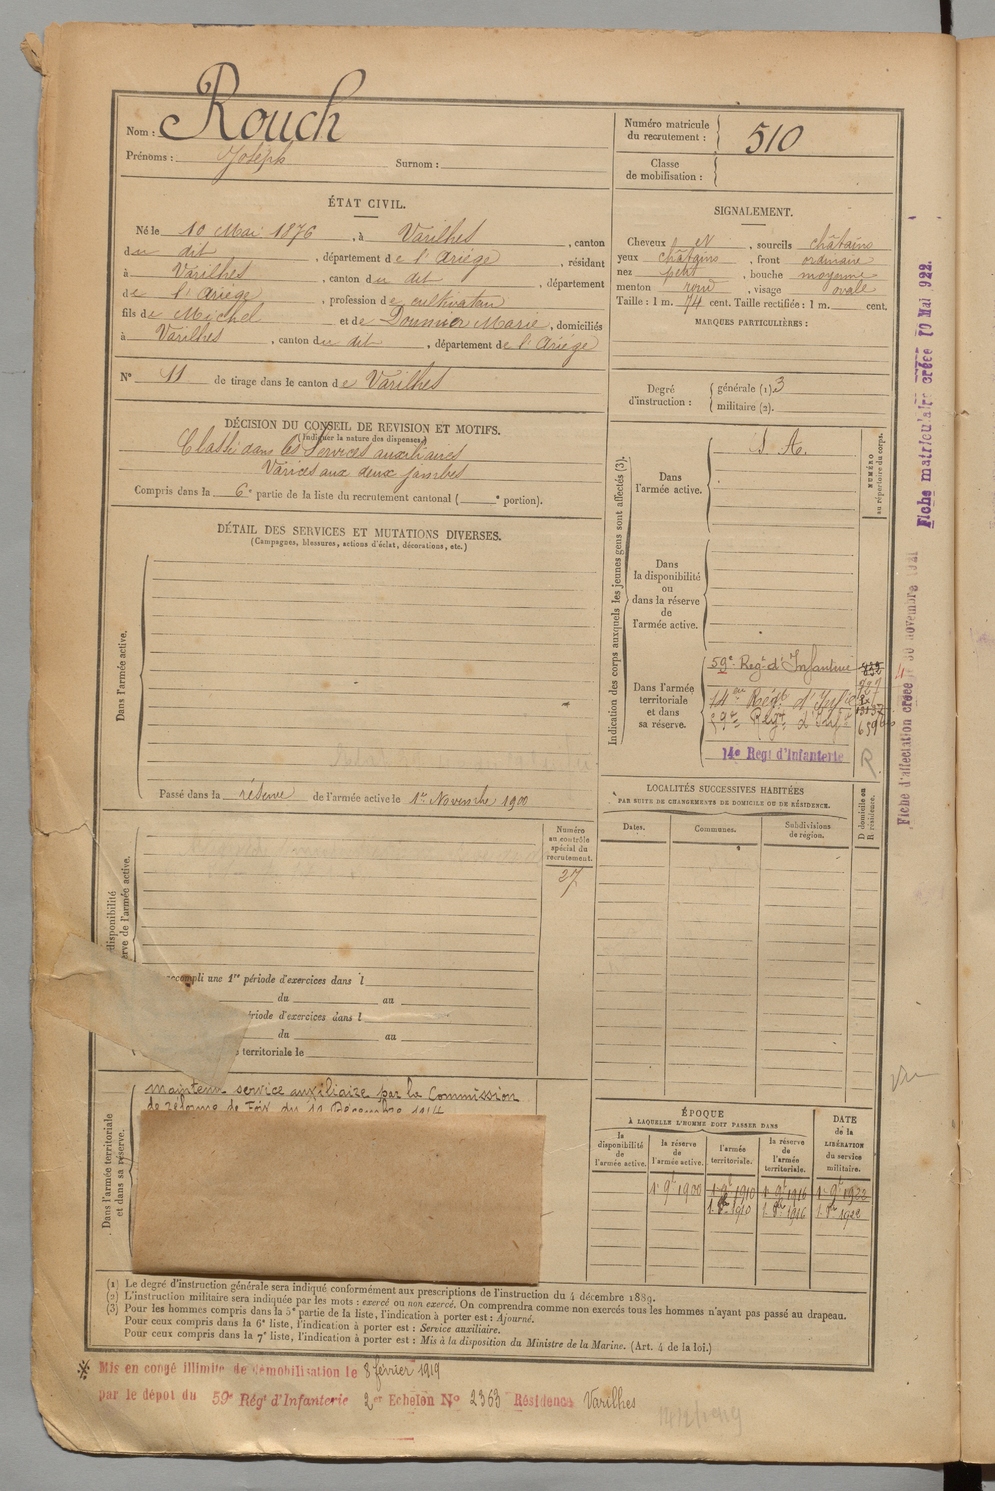 Nom : Rouch
Prénoms : Joseph Surnom :
Numéro matricule du recrutement : 510
Classe de mobilisation :
ÉTAT CIVIL.
Né le 10 Mai 1876, à Varilhes, canton
du dit, département de l'Ariège, résidant
à Varilhes, canton du dit, département
de l'Ariège, profession de cultivateur
fils de Michel et de Dounier Marie, domiciliés
à Varilhes, canton du dit, département de l'Ariège
N° 11 de tirage dans le canton de Varilhes
SIGNALEMENT.
Cheveux et, sourcils châtains
yeux châtains, front ordinaire
nez petit, bouche moyenne
menton rond, visage ovale
Taille : 1 m. 74 cent. Taille rectifiée : 1 m. cent.
MARQUES PARTICULIÈRES :
Degré d'instruction : générale (1) 3
militaire (2).
DÉCISION DU CONSEIL DE REVISION ET MOTIFS.
(Indiquer la nature des dispenses.)
Classé dans les Services auxiliaires
Varices aux deux jambes
Compris dans la 6e partie de la liste du recrutement cantonal ( e portion).
DÉTAIL DES SERVICES ET MUTATIONS DIVERSES.
(Campagnes, blessures, actions d'éclat, décorations, etc.)
Dans l'armée active.
Passé dans la réserve de l'armée active le 1er Novembre 1900
Indication des corps auxquels les jeunes gens sont affectés (3).
NUMÉRO au répertoire du corps.
Dans l'armée active.
S. A.
Dans la disponibilité ou dans la réserve de l'armée active.
Dans l'armée territoriale et dans sa réserve.
59e Régt d'Infanterie
14eme Régt d'Infie
59e Régt d'Infie
14e Regt d'Infanterie
R
LOCALITÉS SUCCESSIVES HABITÉES
PAR SUITE DE CHANGEMENTS DE DOMICILE OU DE RÉSIDENCE.
Dates. Communes. Subdivisions de région.
D domicile ou R résidence.
Numéro au contrôle spécial du recrutement.
27
disponibilité
erve de l'armée active.
accompli une 1re période d'exercices dans l
du au
ériode d'exercices dans l
du au
territoriale le
Dans l'armée territoriale et dans sa réserve.
maintenu service auxiliaire par la Commission
de réforme de Foix du 11 Décembre 1914
ÉPOQUE
À LAQUELLE L'HOMME DOIT PASSER DANS
la disponibilité de l'armée active.
la réserve de l'armée active.
l'armée territoriale.
la réserve de l'armée territoriale.
DATE de la LIBÉRATION du service militaire.
1er 9bre 1900 1er 9bre 1910 1er 9bre 1916 1er 9bre 1922
1. 8bre 1910 1. 8bre 1916 1. 8bre 1922
(1) Le degré d'instruction générale sera indiqué conformément aux prescriptions de l'instruction du 4 décembre 1889.
(2) L'instruction militaire sera indiquée par les mots : exercé ou non exercé. On comprendra comme non exercés tous les hommes n'ayant pas passé au drapeau.
(3) Pour les hommes compris dans la 5e partie de la liste, l'indication à porter est : Ajourné.
Pour ceux compris dans la 6e liste, l'indication à porter est : Service auxiliaire.
Pour ceux compris dans la 7e liste, l'indication à porter est : Mis à la disposition du Ministre de la Marine. (Art. 4 de la loi.)
Mis en congé illimité de démobilisation le 8 février 1919
par le dépot du 59e Régt d'Infanterie 2e Echelon N° 2363 Résidence Varilhes
Fiche matriculaire créée 10 Mai 1922.
Fiche d'affectation créée
Vu